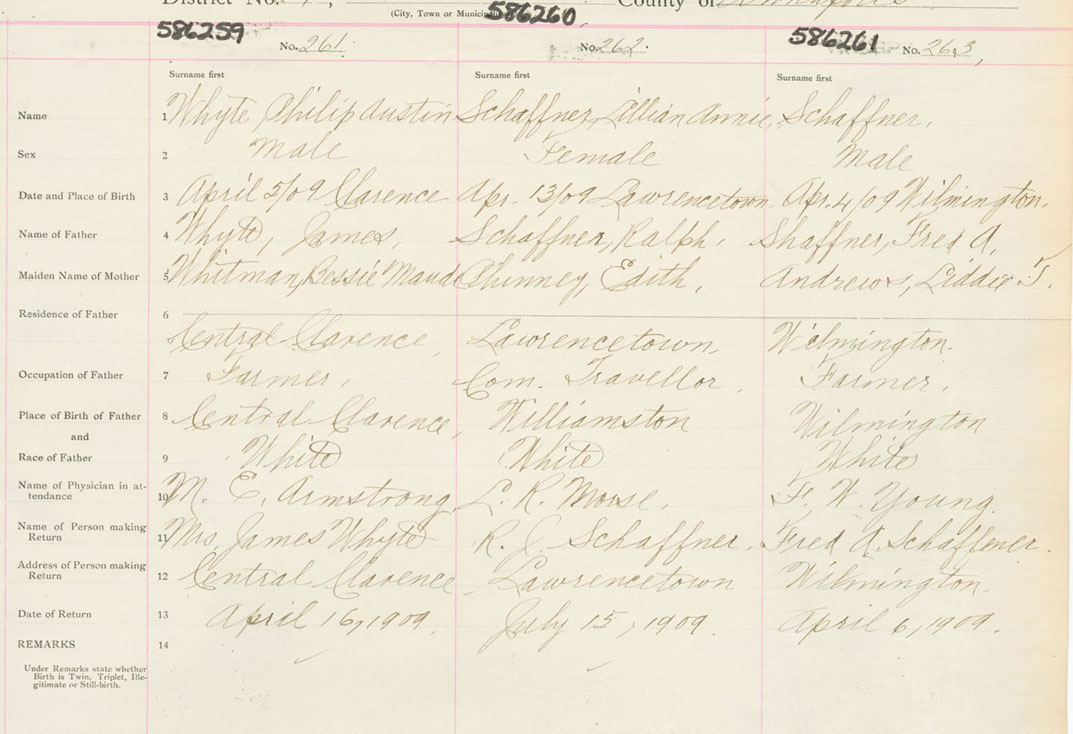 District No. County of
(City, Town or Munici
586259 586260 586261
No. 261 No. 262. No. 263
Surname first Surname first Surname first
Name 1 Whyte, Philip Austin Schaffner, Lillian Annie, Schaffner,
Sex 2 Male Female Male
Date and Place of Birth 3 April 5/09 Clarence Apr. 13/09 Lawrencetown. Apr. 4/09 Wilmington.
Name of Father 4 Whyte, James, Schaffner, Ralph, Shaffner, Fred A,
Maiden Name of Mother 5 Whitman, Bessie Maude Phinney, Edith, Andrews, Liddie T.
Residence of Father 6
Central Clarence, Lawrencetown, Wilmington.
Occupation of Father 7 Farmer, Com. Travellor, Farmer,
Place of Birth of Father 8 Central Clarence, Williamston Wilmington
and
Race of Father 9 White White White
Name of Physician in at-
tendance 10 M. E. Armstrong L. R. Morse, F. W. Young
Name of Person making
Return 11 Mrs. James Whyte R. J. Schaffner, Fred A. Schaffener.
Address of Person making
Return 12 Central Clarence, Lawrencetown Wilmington.
Date of Return 13 April 16, 1909, July 15, 1909. April 6, 1909.
REMARKS 14
Under Remarks state whether
Birth is Twin, Triplet, Ille-
gitimate or Still-birth.